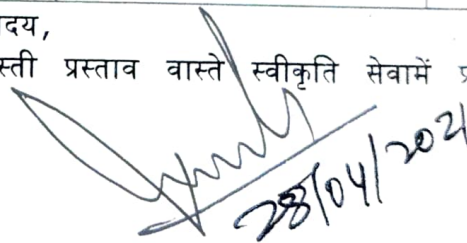 दय,
स्ती प्रस्ताव वास्ते स्वीकृति सेवामें प्र
28/04/202